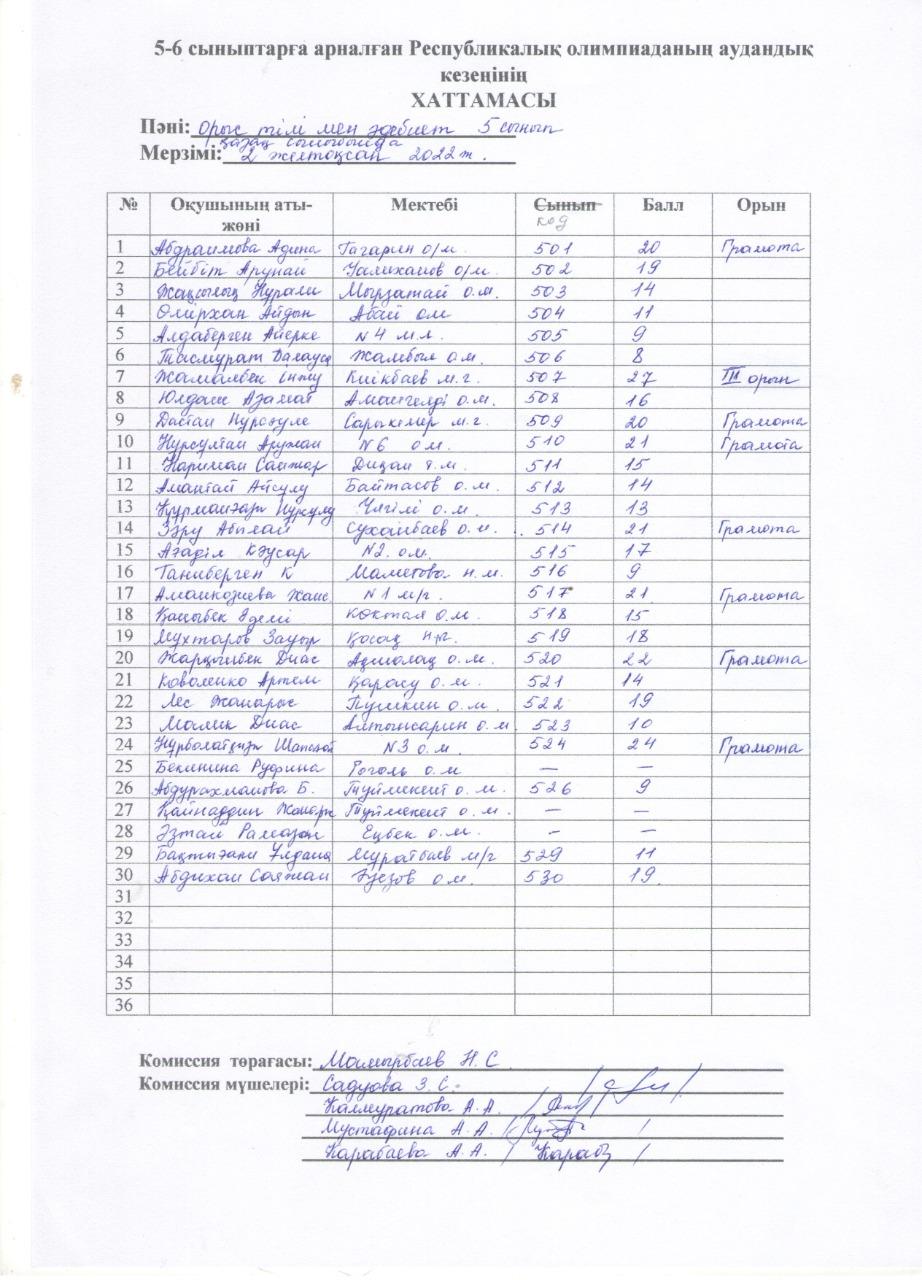 5-6 сыныптарға арналған Республикалық олимпиаданың аудандық
кезеңінің
ХАТТАМАСЫ
Пәні: Орыс тілі мен әдебиет 5 сынып
қазақ сыныбында
Мерзімі: 2 желтоқсан 2022ж.
№ Оқушының аты-жөні Мектебі Сынып код Балл Орын
1 Абдраимова Адина Гагарин о/м. 501 20 Грамота
2 Бейбіт Арунай Уалиханов о/м. 502 19
3 Жақсылық Нурали Мырзатай о.м. 503 14
4 Өмірхан Айдын Абай ом 504 11
5 Алдаберген Айерке N4 м.л. 505 9
6 Тасмурат Далауса Жамбыл о.м. 506 8
7 Жамалбек Інжу Киікбаев м.г. 507 27 III орын
8 Юлдаш Азамат Амангелді о.м. 508 16
9 Дастан Нурсәуле Сарыкемер м.г. 509 20 Грамота
10 Нурсултан Аружан N6 ом. 510 21 Грамота
11 Нариман Санжар Дихан о.м. 511 15
12 Амантай Айсулу Байтасов о.м. 512 14
13 Құрманғазы Нурсулу Үлгілі о.м. 513 13
14 Зәру Абылай Суханбаев о.м. 514 21 Грамота
15 Ағаділ Кәусар N2. ом. 515 17
16 Таниберген К Маметова н.м. 516 9
17 Аманкозиева Жания N1 м/г. 517 21 Грамота
18 Қаныбек Әдемі көктал о.м 518 15
19 Мухтаров Зауыр Қосақ нег. 519 18
20 Жарқынбек Диас Ақмолақ о.м. 520 22 Грамота
21 Коваленко Артем Қарасу о.м. 521 14
22 Лес Жанарыс Пушкин о.м. 522 19
23 Малик Диас Алтынсарин о.м 523 10
24 Нурболатқызы N3 о.м. 524 24 Грамота
25 Бекинина Руфина Гоголь о.м — —
26 Абдурахманова Б. Туймекент о.м. 526 9
27 Қайнаддин Туймекент о.м. — —
28 Әзтай Рамазан Еңбек о.м. - —
29 Бақтығали Ұлдана Муратбаев м/г 529 11
30 Абдихан Саяжан Әуезов ом. 530 19
31
32
33
34
35
36
Комиссия төрағасы: Мамырбаев Н.С
Комиссия мүшелері: Садуова З.С.
Калмуратова А.А.
Мустафина А.А.
Карабаева А.А.